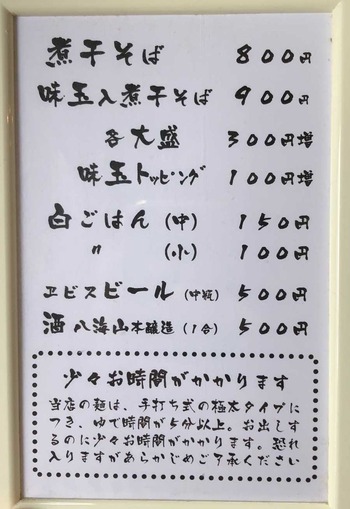 煮干そば 800円
味玉入煮干そば 900円
各大盛 300円増
味玉トッピング 100円増
白ごはん(中) 150円
〃 (小) 100円
ヱビスビール(中瓶) 500円
酒 八海山本醸造(1合) 500円
少々お時間がかかります
当店の麺は、手打ち式の極太タイプに
つき、ゆで時間が5分以上。お出しす
るのに少々お時間がかかります。恐れ
入りますがあらかじめご了承ください